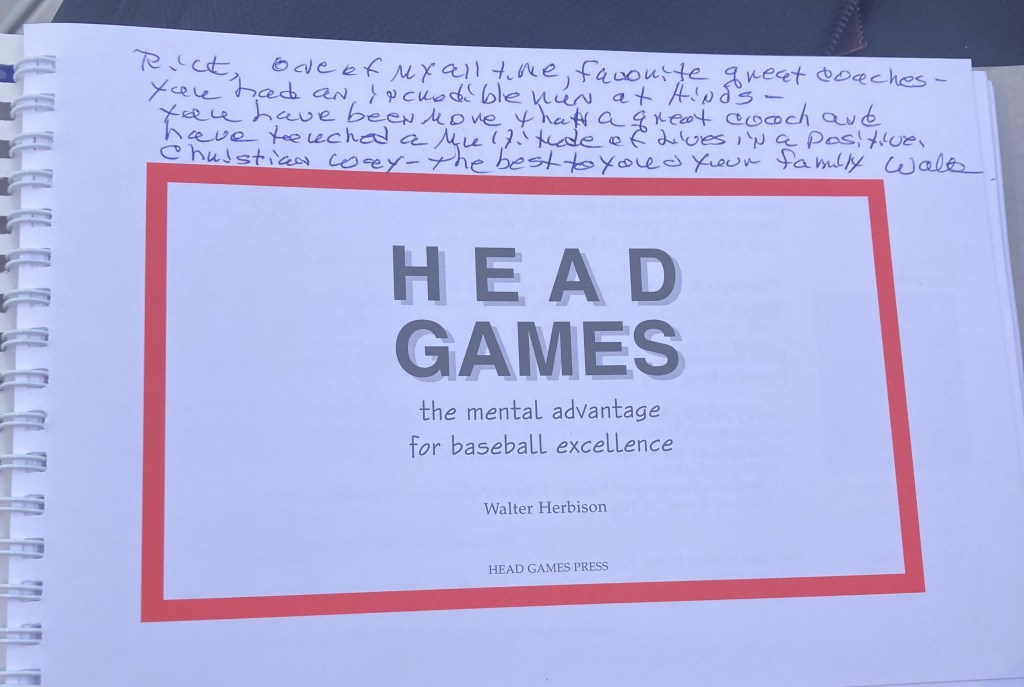 Rick, one of my all time, favorite great coaches -
you had an incredible run at Hinds -
you have been more than a great coach and
have touched a multitude of lives in a positive,
Christian way - the best to you & your family Walt
HEAD
GAMES
the mental advantage
for baseball excellence
Walter Herbison
HEAD GAMES PRESS